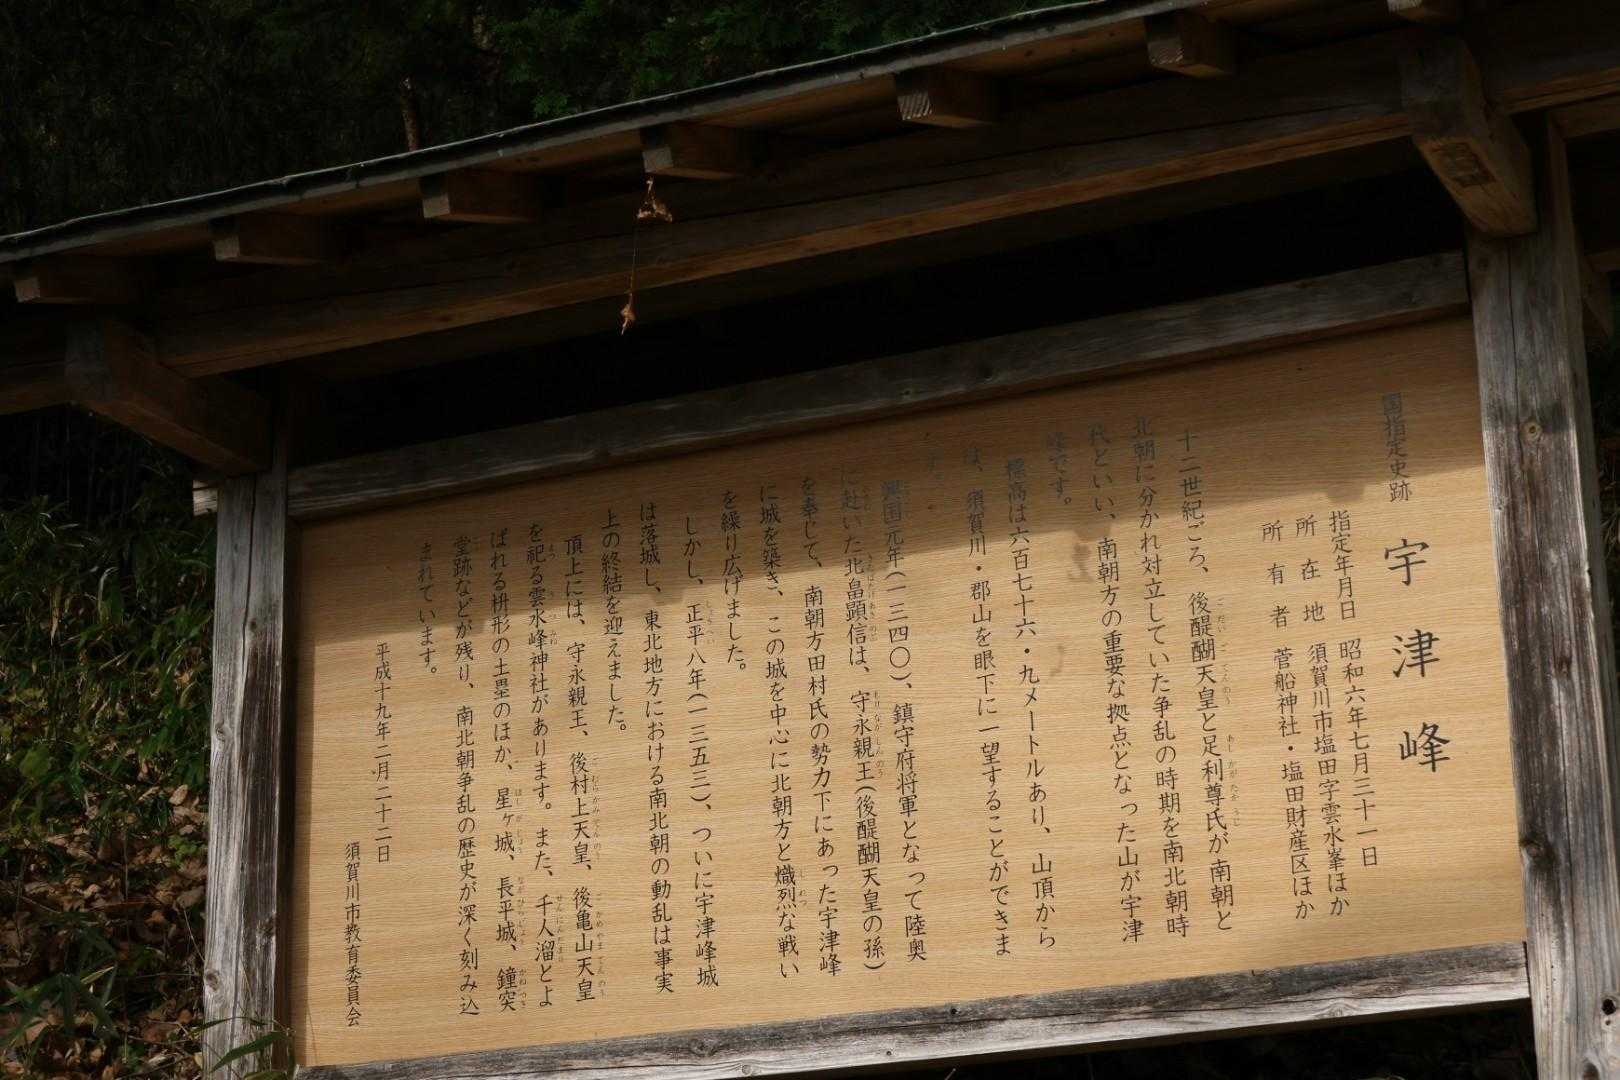 国指定史跡
宇津峰
指定年月日 昭和六年七月三十一日
所在地 須賀川市塩田字雲水峯ほか
所有者 菅船神社・塩田財産区ほか
十二世紀ごろ、後醍醐天皇と足利尊氏が南朝と
北朝に分かれ対立していた争乱の時期を南北朝時
代といい、南朝方の重要な拠点となった山が宇津
峰です。
標高は六百七十六・九メートルあり、山頂から
は、須賀川・郡山を眼下に一望することができま
す。
興国元年(一三四〇)、鎮守府将軍となって陸奥
に赴いた北畠顕信は、守永親王(後醍醐天皇の孫)
を奉じて、南朝方田村氏の勢力下にあった宇津峰
に城を築き、この城を中心に北朝方と熾烈な戦い
を繰り広げました。
しかし、正平八年(一三五三)、ついに宇津峰城
は落城し、東北地方における南北朝の動乱は事実
上の終結を迎えました。
頂上には、守永親王、後村上天皇、後亀山天皇
を祀る雲水峰神社があります。また、千人溜とよ
ばれる枡形の土塁のほか、星ヶ城、長平城、鐘突
堂跡などが残り、南北朝争乱の歴史が深く刻み込
まれています。
平成十九年二月二十二日
須賀川市教育委員会